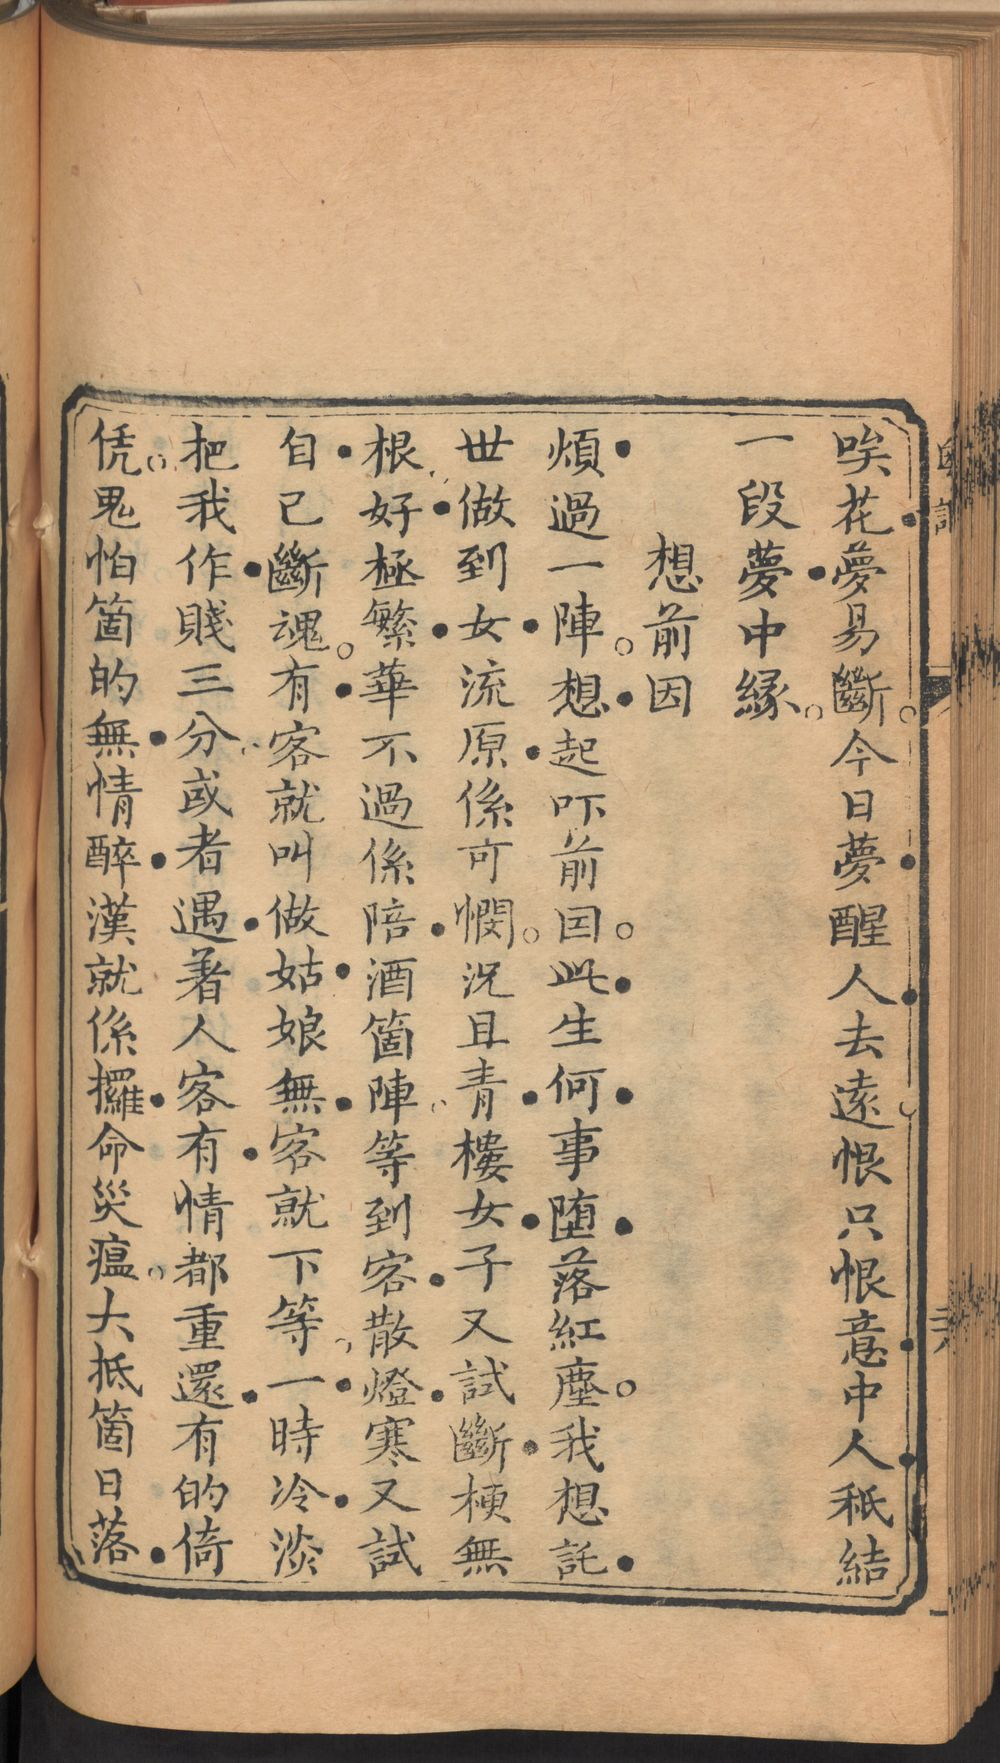 唉花夢易斷。今日夢醒人去遠恨只恨意中人秖結
一段夢中緣。
想前因
煩過一陣。想起吓前因。此生何事墮落紅塵。我想託
世做到女流原係可憫。況且青樓女子又試斷梗無
根好極繁華不過係陪酒箇陣等到客散燈寒又試
自己斷魂。有客就叫做姑娘無客就下等一時冷淡
把我作賤三分或者遇著人客有情都重還有的倚
凭。鬼怕箇的無情醉漢就係攞命災瘟。大抵箇日落